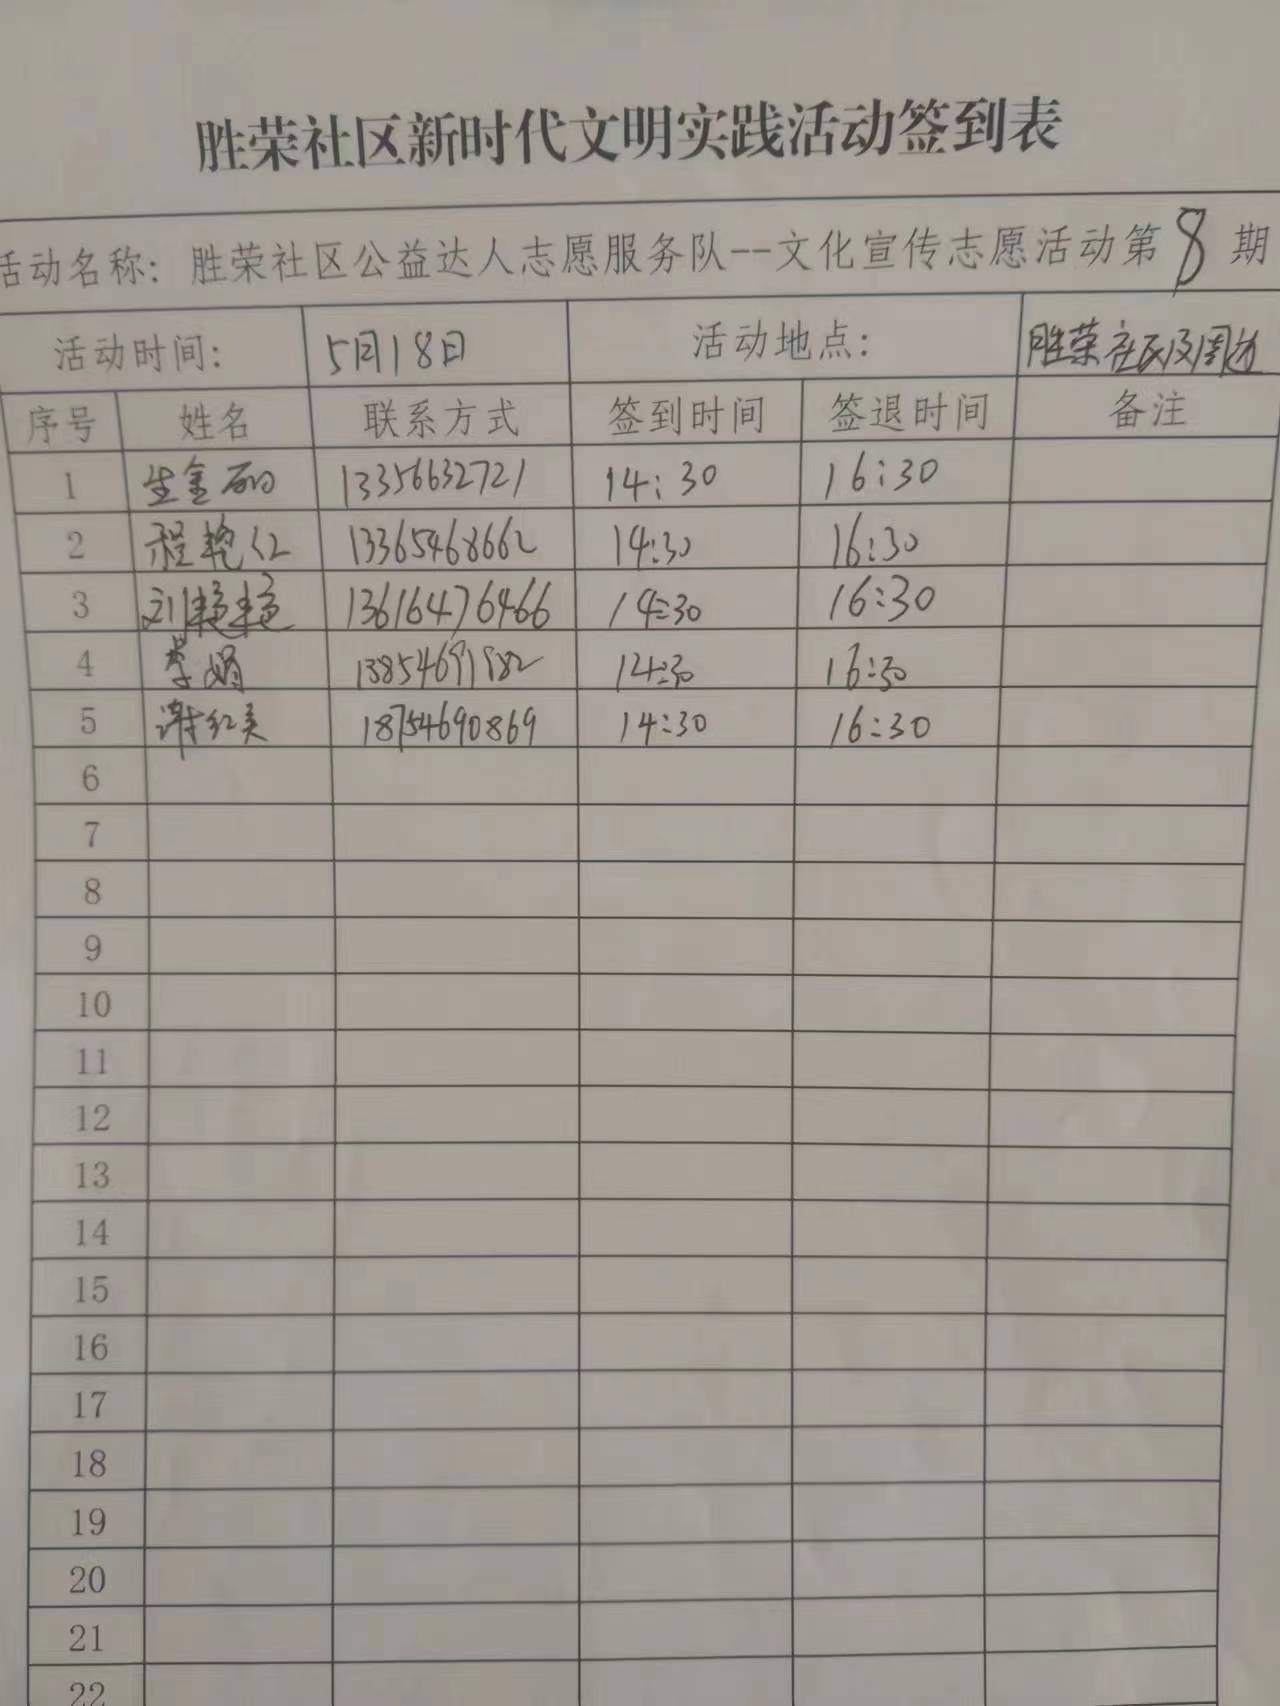 胜荣社区新时代文明实践活动签到表
活动名称：胜荣社区公益达人志愿服务队--文化宣传志愿活动第8期
活动时间： 5月18日 活动地点： 胜荣社区及周边
序号 姓名 联系方式 签到时间 签退时间 备注
1 13356632721 14:30 16:30
2 程艳红 13365468662 14:30 16:30
3 刘 13616476466 14:30 16:30
4 李娟 13854691982 14:30 16:30
5 谢红英 18754690869 14:30 16:30
6
7
8
9
10
11
12
13
14
15
16
17
18
19
20
21
22